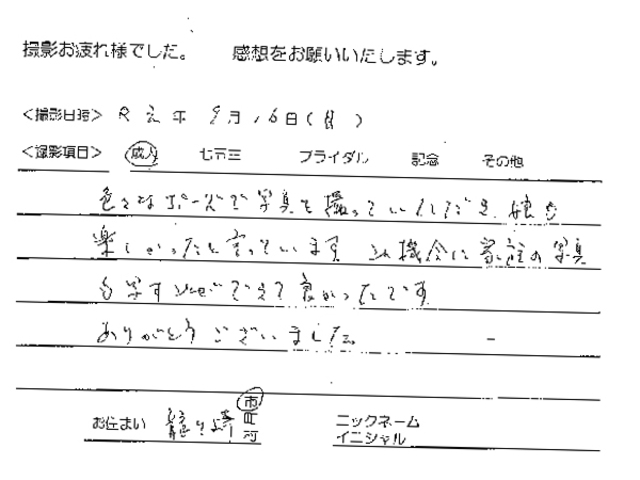 撮影お疲れ様でした。 感想をお願いいたします。
<撮影日時> R元年 9月16日(月)
<撮影項目> 成人 七五三 ブライダル 記念 その他
色々なポーズで写真を撮っていただき、娘も
楽しかったと言っています この機会に家族の写真
も写す でえて良かったです
ありがとうございました。
お住まい 龍ケ崎 市町村 ニックネーム
イニシャル